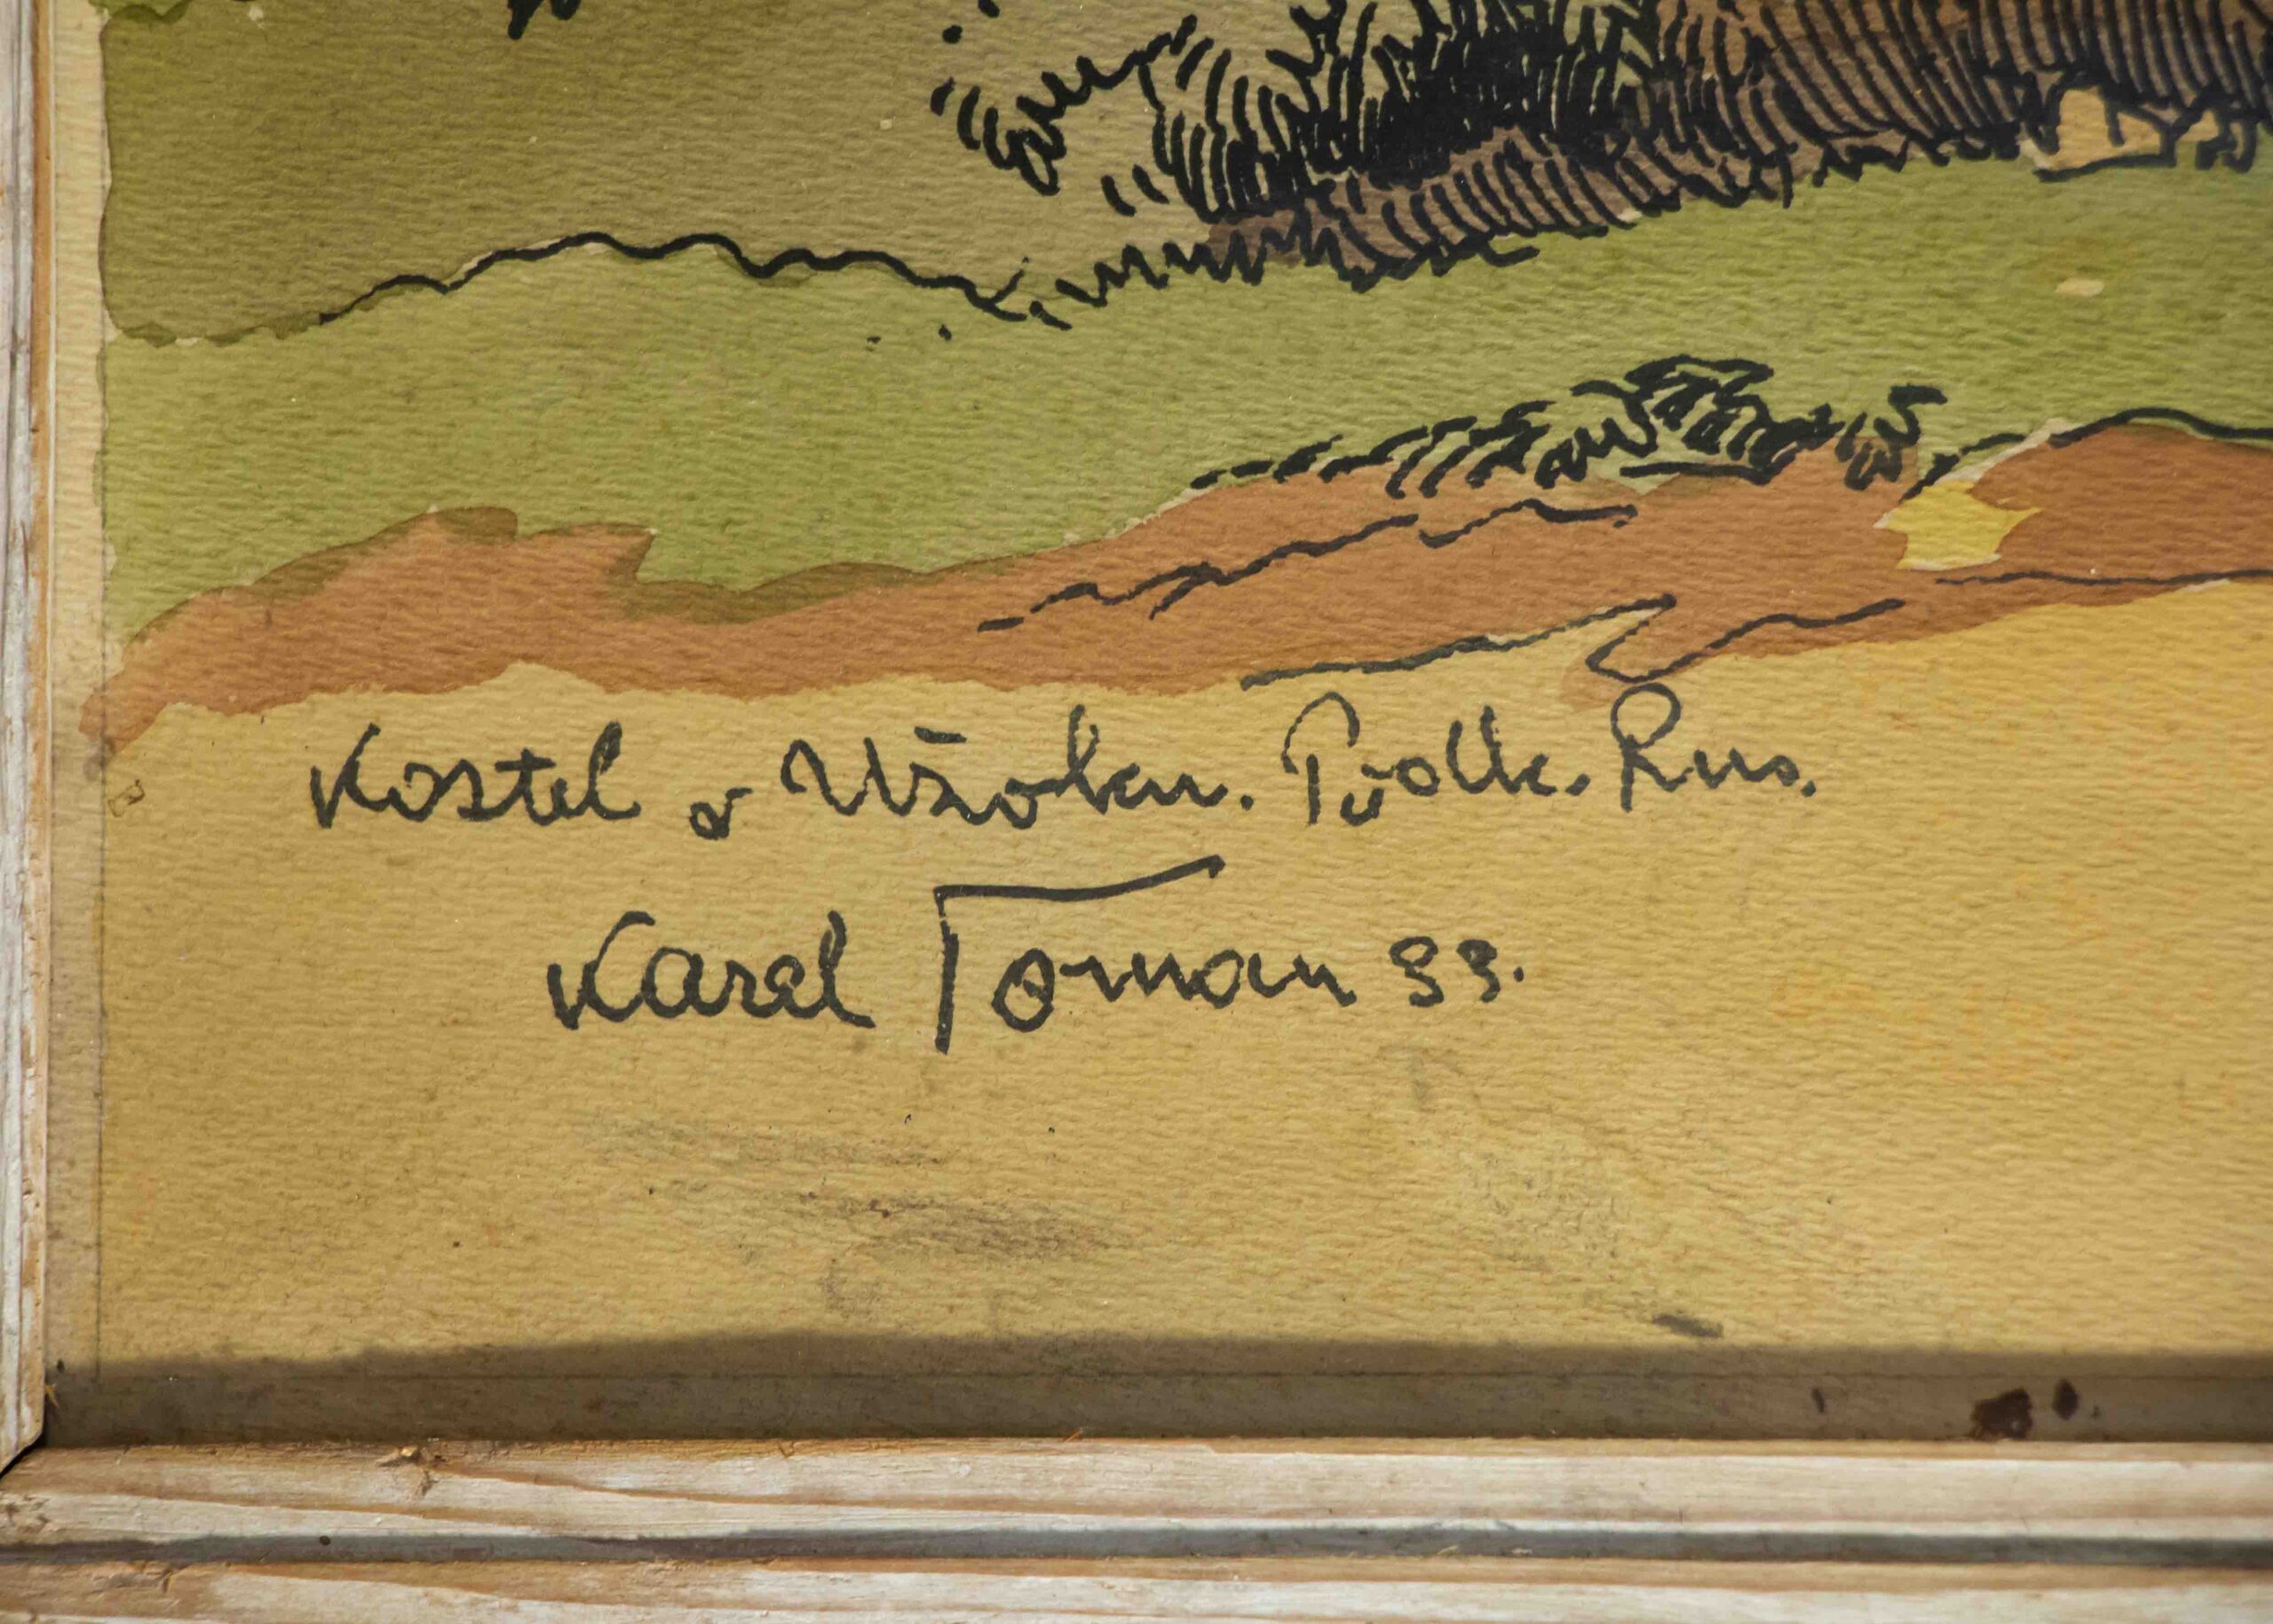 Kostel v Užoku. Podk. Rus.
Karel Toman 33.